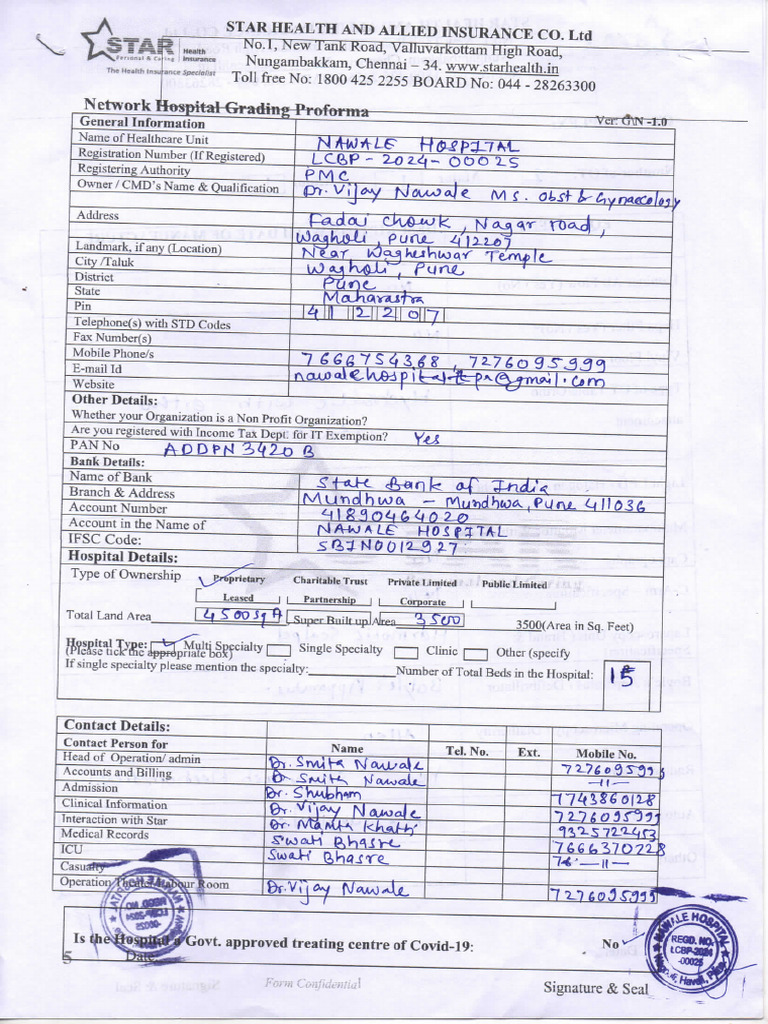 STAR HEALTH AND ALLIED INSURANCE CO. Ltd
No.1, New Tank Road, Valluvarkottam High Road,
Nungambakkam, Chennai – 34. www.starhealth.in
Toll free No: 1800 425 2255 BOARD No: 044 - 28263300
STAR Health Insurance
Personal & Caring
The Health Insurance Specialist
Network Hospital Grading Proforma
Ver: GN -1.0
General Information
Name of Healthcare Unit NAWALE HOSPITAL
Registration Number (If Registered) LCBP - 2024-00025
Registering Authority PMC
Owner / CMD's Name & Qualification Dr. Vijay Nawale MS. Obst & Gynaecology
Address Fadai chowk, Nagar road,
Wagholi, Pune 412207
Landmark, if any (Location) Near Wagheshwar Temple
City /Taluk Wagholi, Pune
District Pune
State Maharastra
Pin 412207
Telephone(s) with STD Codes
Fax Number(s)
Mobile Phone/s 7666754368, 7276095999
E-mail Id nawalehospital.tpa@gmail.com
Website
Other Details:
Whether your Organization is a Non Profit Organization?
Are you registered with Income Tax Dept. for IT Exemption? Yes
PAN No ADDPN 3420 B
Bank Details:
Name of Bank State Bank of India
Branch & Address Mundhwa - Mundhwa, Pune 411036
Account Number 41890464020
Account in the Name of NAWALE HOSPITAL
IFSC Code: SBIN0012927
Hospital Details:
Type of Ownership Proprietary Charitable Trust Private Limited Public Limited
Leased Partnership Corporate
Total Land Area 4500 sq ft Super Built up Area 3500 3500(Area in Sq. Feet)
Hospital Type: Multi Specialty Single Specialty Clinic Other (specify
(Please tick the appropriate box)
If single specialty please mention the specialty: Number of Total Beds in the Hospital: 15
Contact Details:
Contact Person for Name Tel. No. Ext. Mobile No.
Head of Operation/ admin Dr. Smita Nawale 7276095999
Accounts and Billing Dr Smita Nawale -11-
Admission Dr. Shubham 1743860128
Clinical Information Dr. Vijay Nawale 7276095999
Interaction with Star Dr. Mamta Khatri 9325722453
Medical Records Swati Bhasre 7666370228
ICU Swati Bhasre 76 -11-
Casualty
Operation Theatre/Labour Room Dr. Vijay Nawale 7276095999
Is the Hospital a Govt. approved treating centre of Covid-19: No
5 Date:
Form Confidential
Signature & Seal
NAWALE HOSPITAL
REGD. NO.
LCBP-2024
-00025
Haveli, Pune